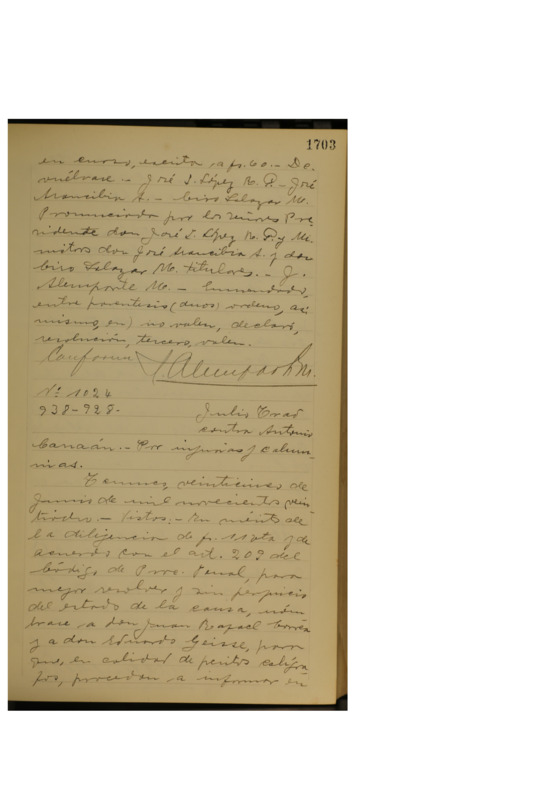 1703
en curso, escrita a fs. 60.- De-
vuélvase.- José I. López R. P.- José
Arancibia A.- Ciro Salazar M.
Pronunciada por los señores Pre-
sidente don José I. López R. P. y Mi-
nistros don José Arancibia A. y don
Ciro Salazar M. titulares.- J.
Alemparte M.- Enmendado,
entre paréntesis (duos) ordeno, asi
mismo, en) no valen, declaró,
resolución, tercero, valen.
Conforme
Nº 1024
938-928-
Julio
contra Antonio
Canaán.- Por injurias y calum-
nias.
Temuco, veinticinco de
Junio de mil novecientos vein-
.- Vistos:- En mérito de
la diligencia de fs. 11 vta y de
acuerdo con el art. 20º del
Código de Proc. Penal, para
mejor resolver y sin perjuicio
del estado de la causa, nóm-
brase a don Juan Rafael
y a don Eduardo Geisse, para
que, en calidad de peritos calígra-
fos, procedan a informar en